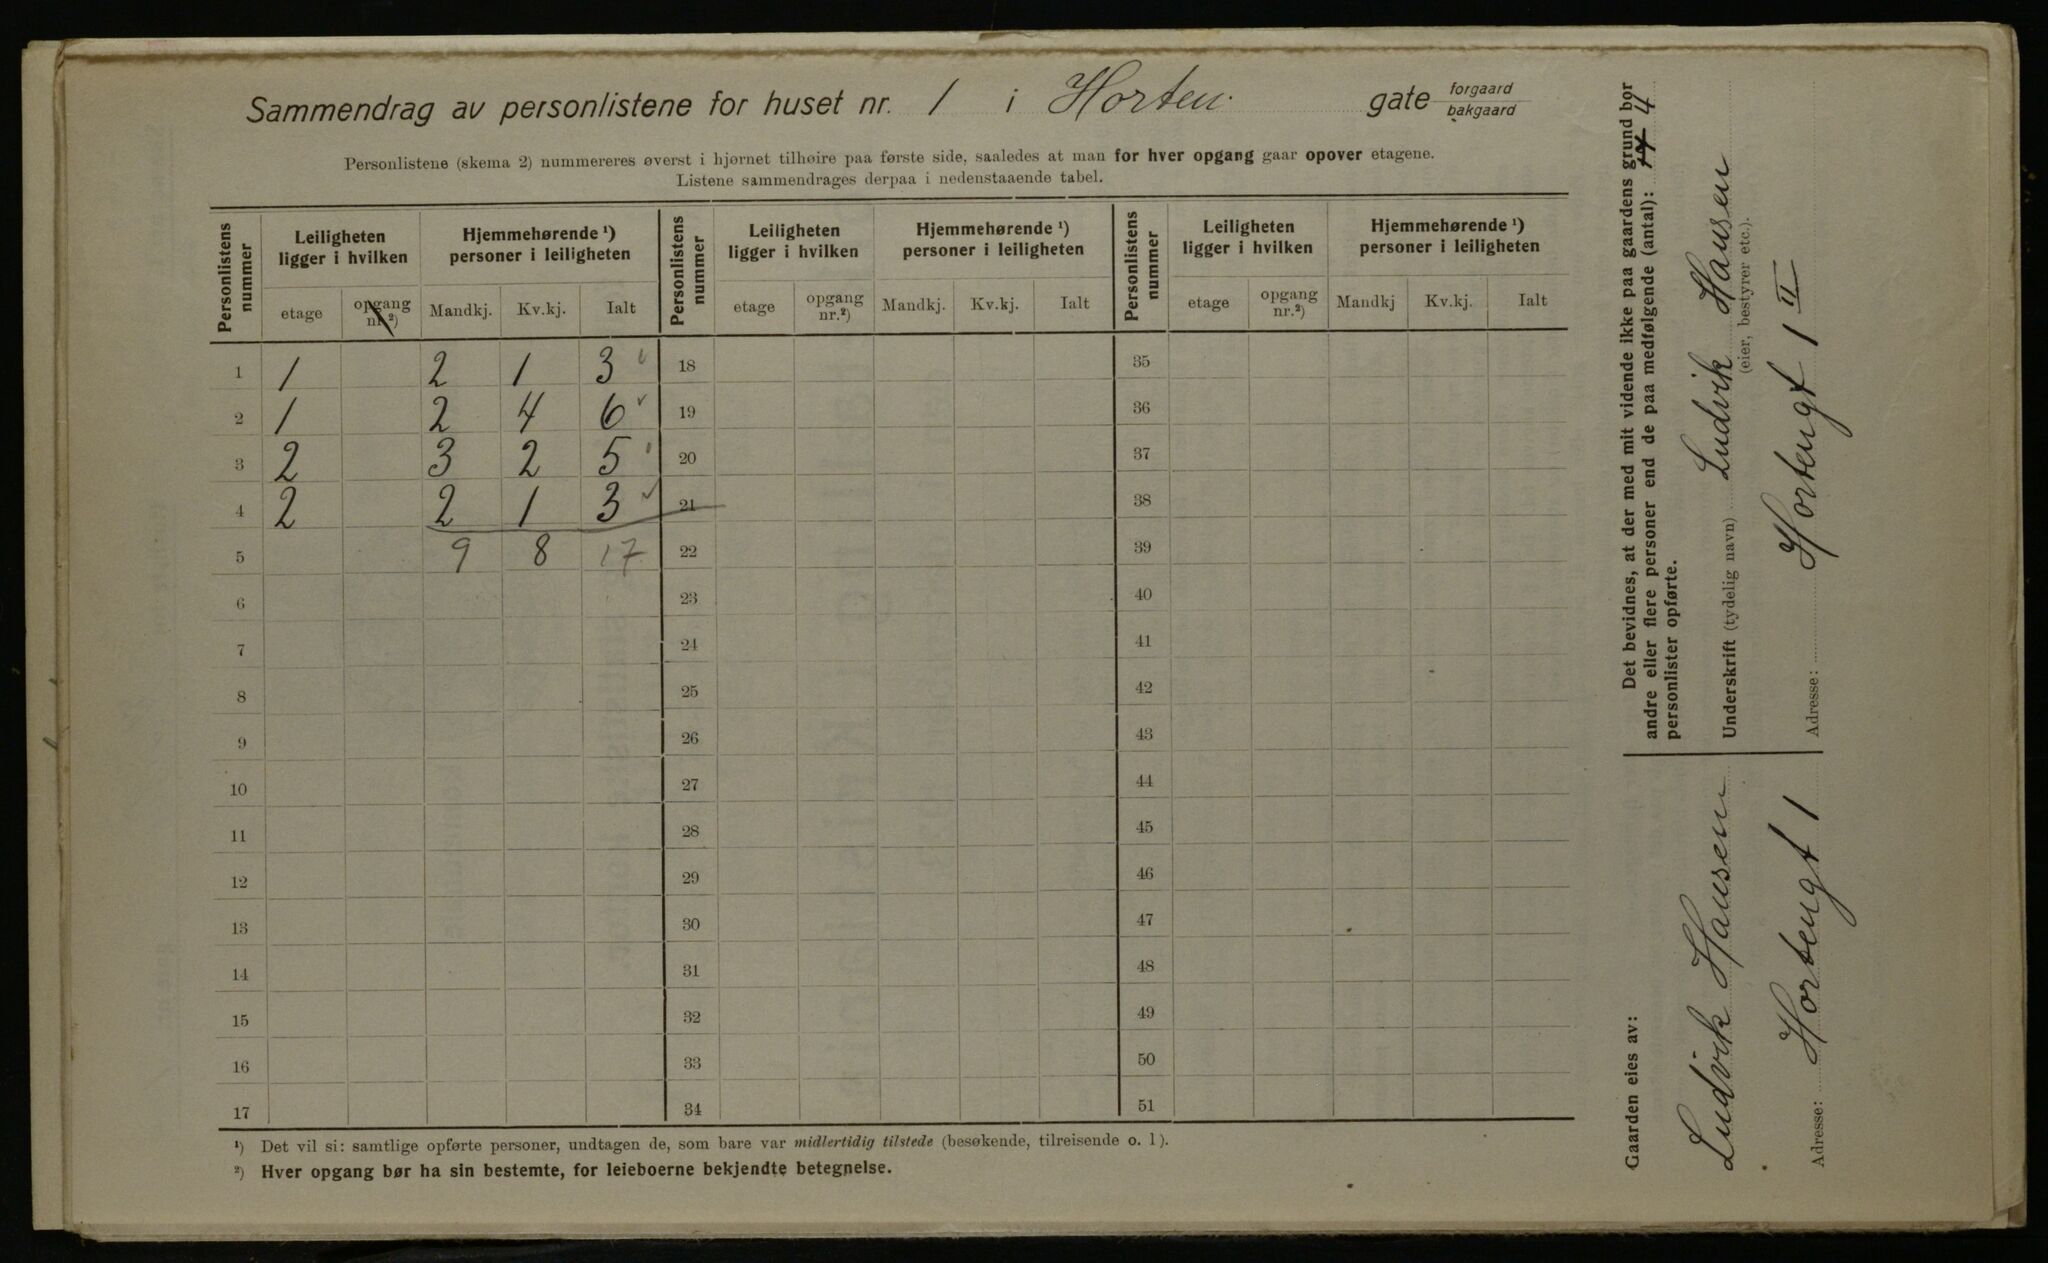 Sammendrag av personlistene for huset nr. 1 i Horten. gate forgaard bakgaard
Personlistene (skema 2) nummereres øverst i hjørnet tilhøire paa første side, saaledes at man for hver opgang gaar opover etagene.
Listene sammendrages derpaa i nedenstaaende tabel.
Personlistens nummer | Leiligheten ligger i hvilken | Hjemmehørende ¹) personer i leiligheten | Personlistens nummer | Leiligheten ligger i hvilken | Hjemmehørende ¹) personer i leiligheten | Personlistens nummer | Leiligheten ligger i hvilken | Hjemmehørende ¹) personer i leiligheten
etage | opgang nr.²) | Mandkj. | Kv.kj. | Ialt | etage | opgang nr.²) | Mandkj. | Kv.kj. | Ialt | etage | opgang nr.²) | Mandkj | Kv.kj. | Ialt
1 1 2 1 3 18 35
2 1 2 4 6 19 36
3 2 3 2 5 20 37
4 2 2 1 3 21 38
5 9 8 17 22 39
6 23 40
7 24 41
8 25 42
9 26 43
10 27 44
11 28 45
12 29 46
13 30 47
14 31 48
15 32 49
16 33 50
17 34 51
¹) Det vil si: samtlige opførte personer, undtagen de, som bare var midlertidig tilstede (besøkende, tilreisende o. l).
²) Hver opgang bør ha sin bestemte, for leieboerne bekjendte betegnelse.
Det bevidnes, at der med mit vidende ikke paa gaardens grund bor
andre eller flere personer end de paa medfølgende (antal): 17 4
personlister opførte.
Underskrift (tydelig navn) Ludvik Hansen
(eier, bestyrer etc.).
Adresse: Hortengt 1 II
Gaarden eies av:
Ludvik Hansen
Adresse: Hortengt 1